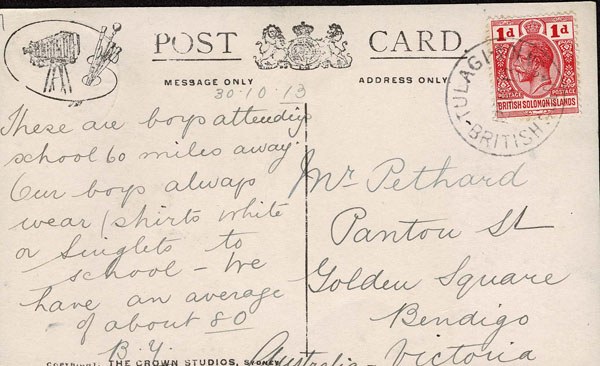 POST CARD.
MESSAGE ONLY
ADDRESS ONLY.
30.10.13
These are boys attending
school 60 miles away.
Our boys always
wear shirts white
or singlets to
school - We
have an average
of about 80
B.Y.
Mr Pethard
Panton St
Golden Square
Bendigo
Australia - Victoria
1d 1d
POSTAGE POSTAGE
BRITISH SOLOMON ISLANDS
TULAGI
BRITISH
COPYRIGHT. THE CROWN STUDIOS, SYDNEY